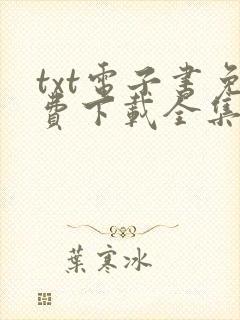 txt電子書免
費下載全集
葉寒冰